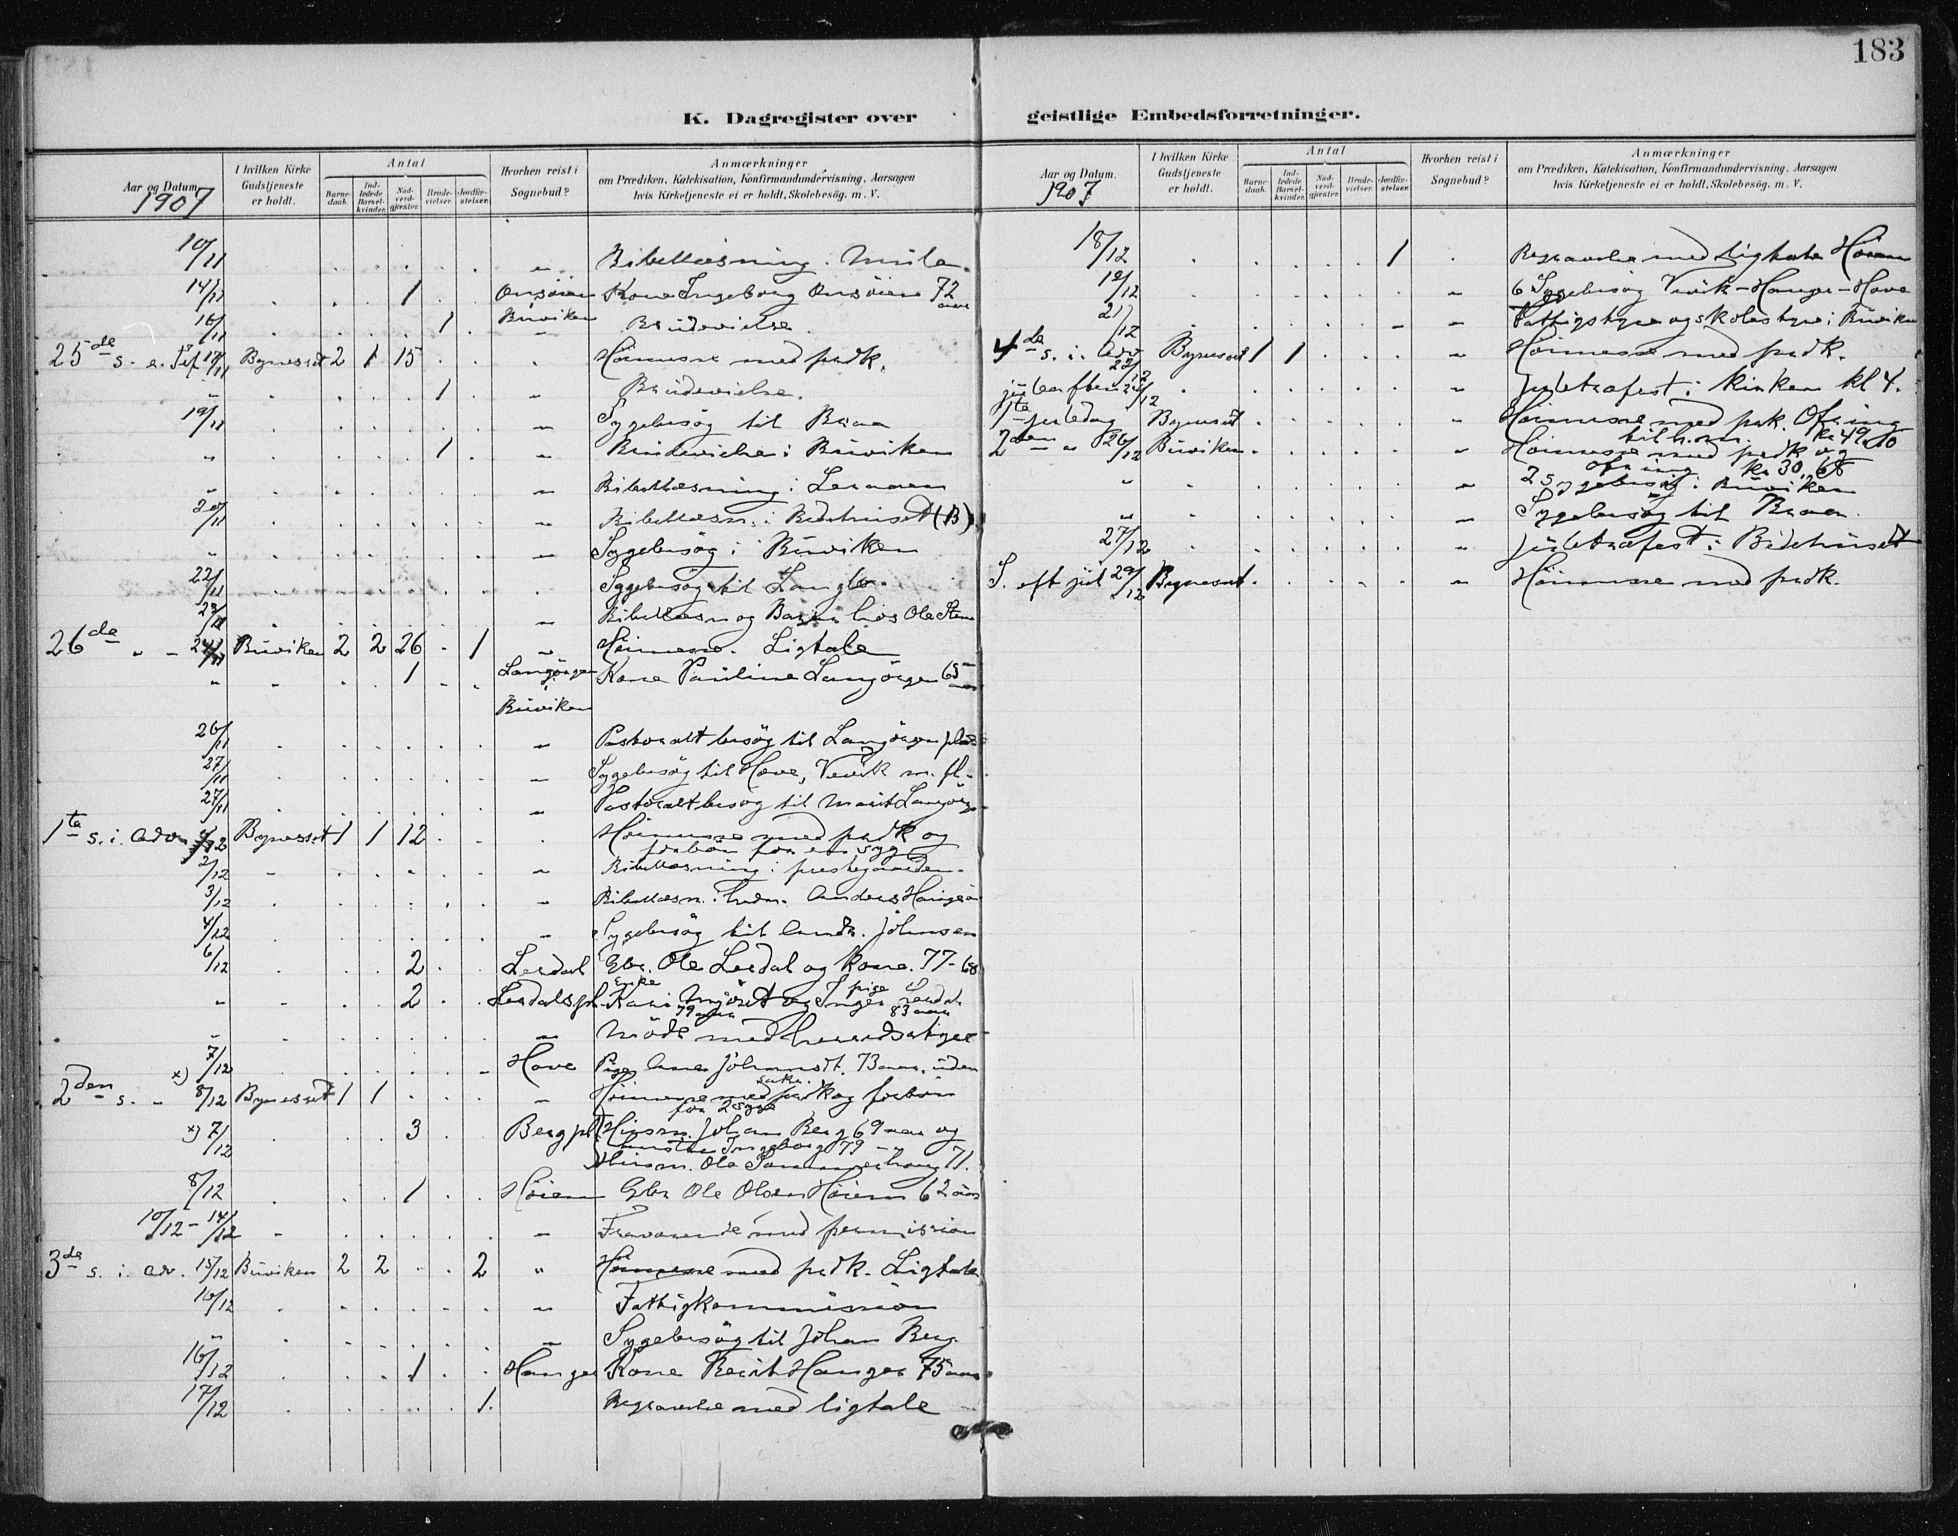 183
K. Dagregister over geistlige Embedsforretninger.
Aar og Datum.
1907
I hvilken Kirke Gudstjeneste er holdt.
Antal
Barnedaab.
Indledede Barselkvinder.
Nadverdgjæster.
Brudevielser.
Jordfæstelser.
Hvorhen reist i Sognebud?
Anmærkninger
om Prædiken, Katekisation, Konfirmandundervisning, Aarsagen
hvis Kirketjeneste ei er holdt, Skolebesøg. m. V.
10/11 " Bibellæsning. Mule.
14/11 1 Onsöien Kone Ingeborg Onsöien 72 aar
Buviken
16/11 1 " Brudevielse.
25de s. e. Tref 17/11 Bynesset 2 1 15 Höimesse med prdk.
" 1 " Brudevielse.
19/11 " Sygebesög til Braa
" 1 " Brudevielse i Buviken
" " Bibellæsning i Leraaen
20/11 " Bibellæsn. i Bedehuset (B)
" " Sygebesög i Buviken
22/11 Sygebesög til Langlo.
23/11 " Bibellæsn og Barn hos Ole Stem
26de " - 24/11 Buviken 2 2 26 1 " Höimesse. Ligtale
" 1 Langörgen Kone Pauline Langörgen 65 aar
Buviken
26/11 " Pastoralt besög til Langörgen pl
27/11 " Sygebesög til Have, Vevik m. fl.
27/11 " Pastoralt besög til Marit Langörg
1te s. i. Adv. 1/12 Bynesset 1 1 12 Höimesse med prdk og
forbön for en syg
2/12 " Bibellæsning i prestegaarden.
3/12 " Bibellæsn. i Anders Haugen
4/12 " Sygebesög til Andr. Johnsen
6/12 2 Lerdal Gbr. Ole Lerdal og kone. 77-68
" 2 Lerdalspl. Enke Kari Mjöset og pige Inger Lerdal
79 aar 83 aar
" " Möde med
x) 7/12 Have Pige Ane Johnsdt. 73 aar, uden
sakr.
2den s. " 8/12 Bynesset 1 1 " Höimesse med prdk og forbön
for 2 syge
x) 7/12 3 Berg pl. Husm. Johan Berg 69 aar og
Ingeborg 79 - "
Husm. Ole Sommerhaug 71.
8/12 1 Höiem Gbr Ole Olsen Höiem 62 aar
10/12 - 14/12 " Fraværende med permission
3de s. i. adv. 15/12 Buviken 2 2 2 " Höimesse med prdk. Ligtale
10/12 " Fattigkommission
" " Sygebesög til Johan Berg
16/12 1 Hanger Kone Berit Hanger 75 aar
17/12 1. Begravelse med ligtale
Aar og Datum.
1907
I hvilken Kirke Gudstjeneste er holdt.
Antal
Barnedaab.
Indledede Barselkvinder.
Nadverdgjæster.
Brudevielser.
Jordfæstelser.
Hvorhen reist i Sognebud?
Anmærkninger
om Prædiken, Katekisation, Konfirmandundervisning, Aarsagen
hvis Kirketjeneste ei er holdt, Skolebesøg. m. V.
18/12 1 Begravelse med ligtale Höiem
19/12 " 6 Sygebesög Vevik - Hanger - Have
21/12 " Fattigstyre og skolestyre i Buviken
4de s. i. Adv 22/12 Bynesset 1 1 " Höimesse med prdk.
juleaften 24/12 " juletræfest i kirken kl 4.
1te juledag Bynesset " Höimesse med prdk. Ofring
til h.m. kr 49,10
2den " 26/12 Buviken " Höimesse med prdk og
ofring kr 30,68
" " 2 Sygebesög i Buviken
" Sygebesög til Braa
27/12 " juletræfest i Bedehuset
S. eft jul 29/12 Bynesset " Höimesse med prdk.